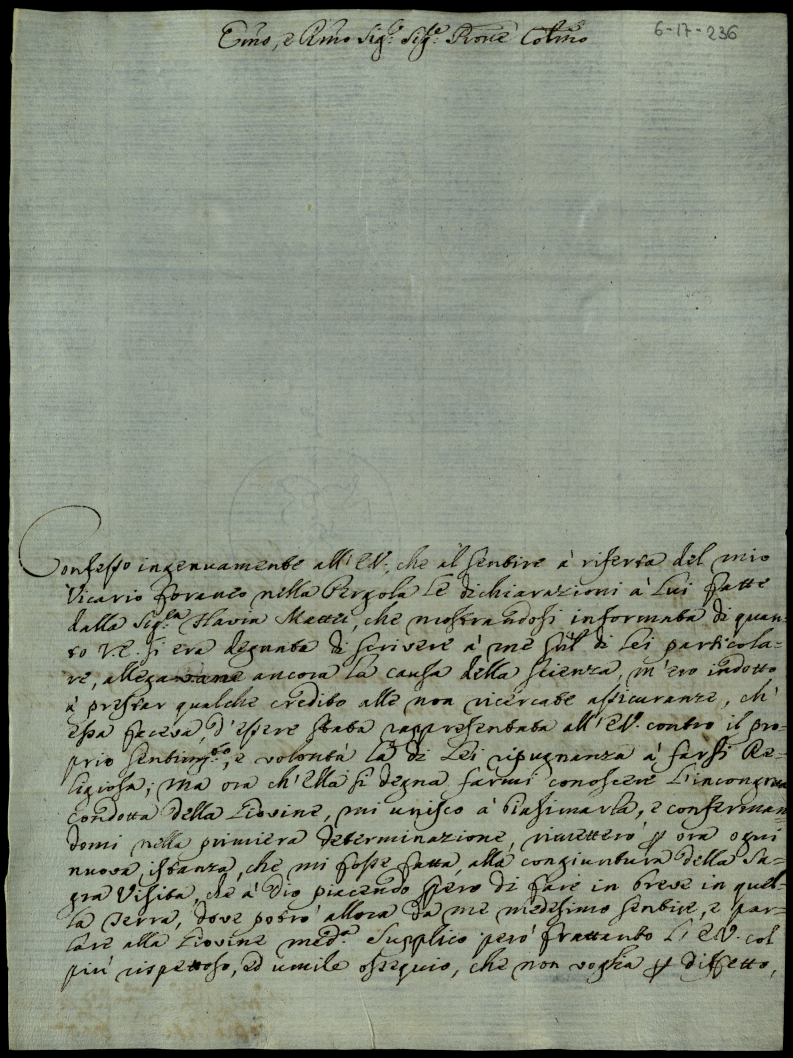 Emo, e Rmo Sig.r Sig.r Prone Colmo
6-17-236
Confesso ingenuamente all'E.V. che al sentire à riferta del mio
Vicario foraneo nella Pergola le dichiarazioni à Lui fatte
dalla Sig.ra Flavia Mattei, che mostrandosi informata di quan=
to V.E. si era degnata di scrivere à me sul di lei particola=
re, allegavane ancora la causa della scienza, m'ero indotto
à prestar qualche credito alle non ricercate assicuranze, ch'
essa faceva, d'essere stata rappresentata all'E.V. contro il pro=
prio sentim.to, e volontà la di Lei ripugnanza à farsi Re=
ligiosa; ma ora ch'Ella si degna farmi conoscere l'incongrua
condotta della Giovine, mi unisco à biasimarla, e conferman=
domi nella primiera determinazione, rimetterò p ora ogni
nuova istanza, che mi fosse fatta, alla congiuntura della Sa=
gra Visita, che à Dio piacendo spero di fare in breve in quel=
la Terra, dove potrò allora da me medesimo sentire, e par=
lare alla Giovine med.a Supplico però frattanto l'E.V. col
più rispettoso, ed umile ossequio, che non voglia p difetto,